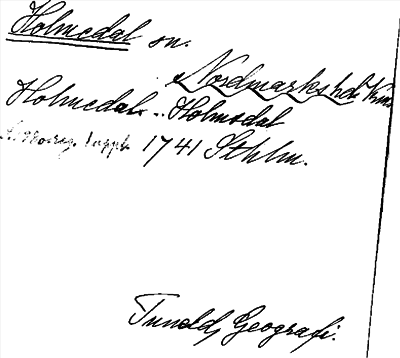 Holmedal sn.
Nordmarks hd. Vrm.
Holmedal - Holmsdal
uppl. 1741 Sthlm.
Tuneld, Geografi.